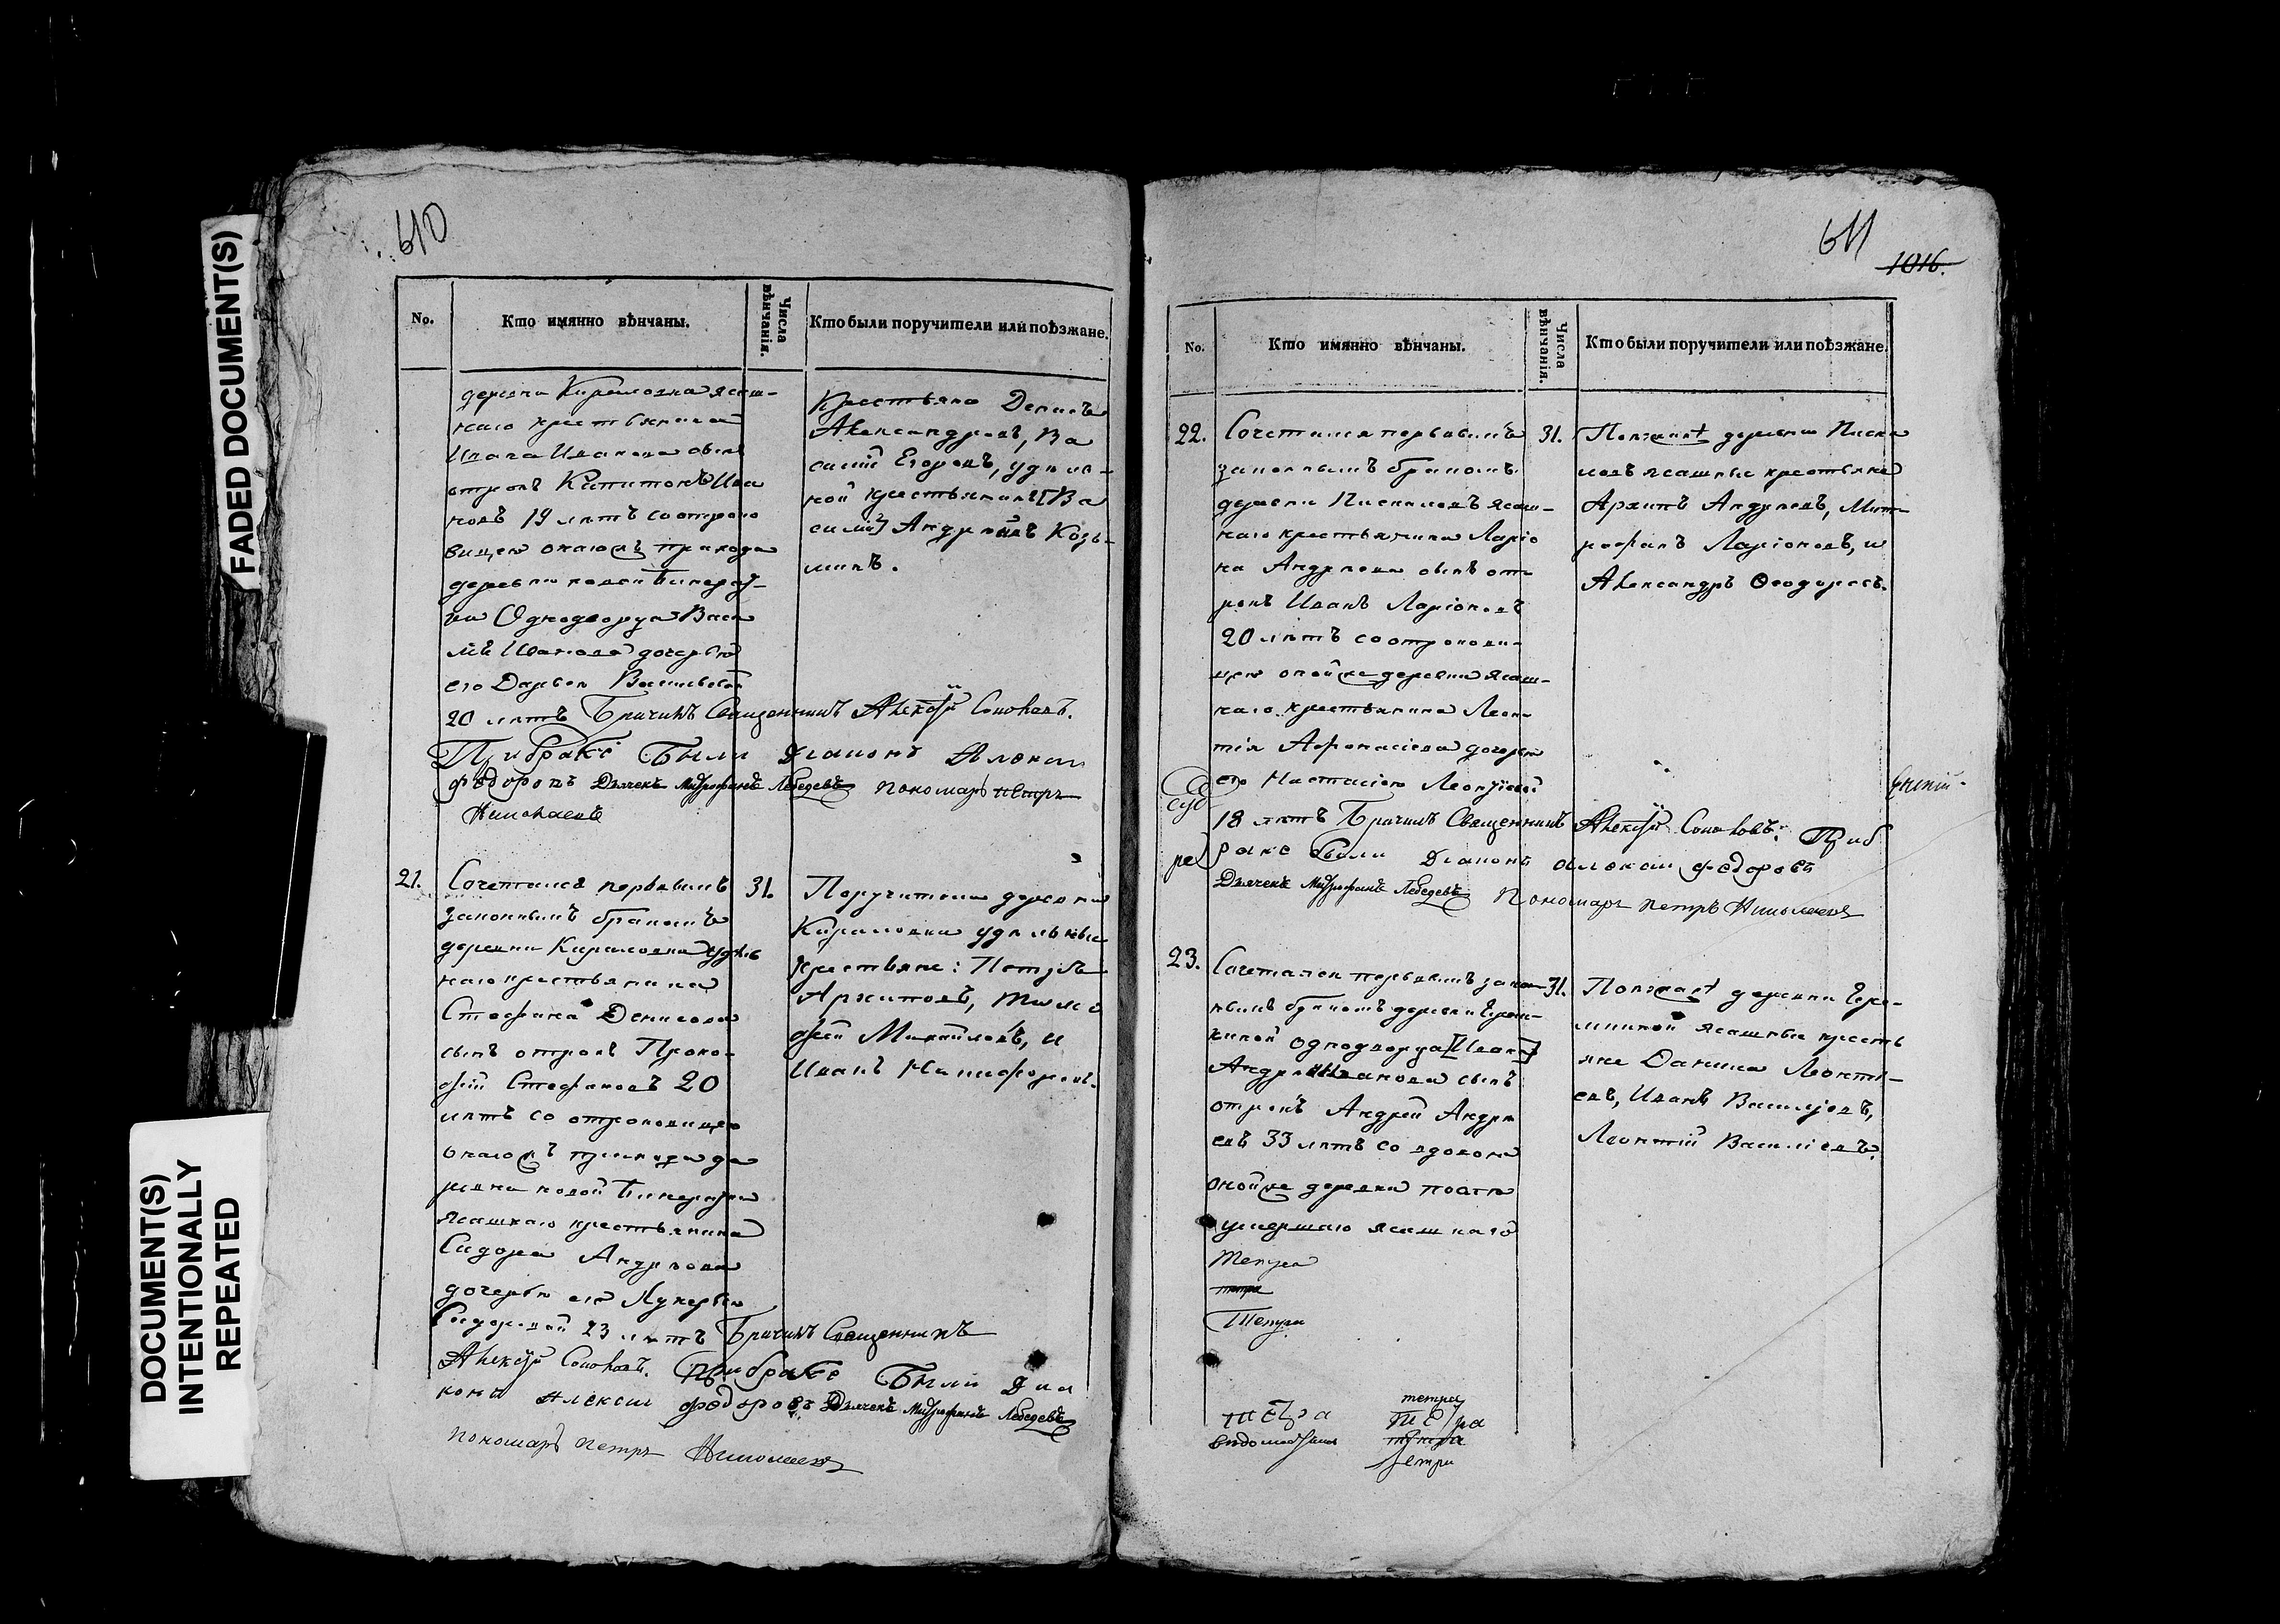 FADED DOCUMENT(S)
DOCUMENT(S)
INTENTIONALLY
REPEATED
610
No.
Кто имянно вѣнчаны.
Числа вѣнчанія.
Кто были поручители или поѣзжане.
деревни Кирѣловка ясаш-
наго крестьянина
Ивана Иванова сынъ
отрокъ Капитонъ Ива
новъ 19 лѣтъ со отроко
вицею онаго жъ прихода
деревни новой
Однодворца Васи
лія Иванова дочерью
его Дарьею Васильевой
20 лѣтъ Вѣнчилъ Священникъ Алексѣй Соколовъ.
При бракѣ были Діаконъ Алексѣи
федоровъ Дьячекъ Митрофанъ Лебедевъ пономарь петръ
Николаевъ
Крестьяне Денисъ
Александровъ, Ва
силій Егоровъ, удѣль-
ной крестьянинъ [Ва
силій] Андрѣй Козь-
минъ.
21.
Сочетался первымъ
законнымъ бракомъ
деревни удѣль
наго крестьянина
Стефана Денисова
сынъ отрокъ Проко-
фій Стефановъ 20
лѣтъ со отроковицею
онаго жъ прихода де
ревни новой
ясашнаго крестьянина
Сидора Андрѣева
дочерью его Лукерью
Сидоровой 23 лѣтъ Вѣнчилъ Священникъ
Алексѣй Соколовъ. При бракѣ Были Диа
конъ Алексѣи федоровъ Дьячекъ Митрофанъ Лебедевъ
пономарь петръ Николаевъ
31.
Поручители деревни
удѣльные
крестьяне: Петръ
Архиповъ, Тимо
фей Михайловъ, и
Иванъ Никифоровъ.
611
1016.
No.
Кто имянно вѣнчаны.
Числа вѣнчанія.
Кто были поручители или поѣзжане.
22.
Сочетался первымъ
законнымъ бракомъ
деревни ясаш-
наго крестьянина Ларіо
на Андрѣева сынъ от-
рокъ Иванъ Ларіоновъ
20 лѣтъ со отрокови-
цею оной же деревни ясаш-
наго крестьянина Леон-
тія Афонасіева дочерью
его Настасіею Леонтіевой
18 лѣтъ Вѣнчилъ Священникъ Алексѣй Соколовъ. При б
ракѣ были Діаконъ алексѣи федоровъ
Дьячекъ Митрофанъ Лебедевъ Пономарь петръ Николаевъ
31.
Поѣзжане деревни
ясашные крестьяне
Архипъ Андрѣевъ, Мит-
рофанъ Ларіоновъ, и
Александръ Ѳеодоровъ.
23.
Сочетался первымъ закон-
нымъ бракомъ деревни
однодворца [Ивана]
Андрѣя Иванова сынъ
отрокъ Андрей Андрѣ
евъ 33 лѣтъ со вдовою
оной же деревни послѣ
умершаго ясашнаго
31.
Поѣзжане деревни
ясашные кресть
яне Данила Леонть-
евъ, Иванъ Василіевъ,
Леонтій Василіевъ.